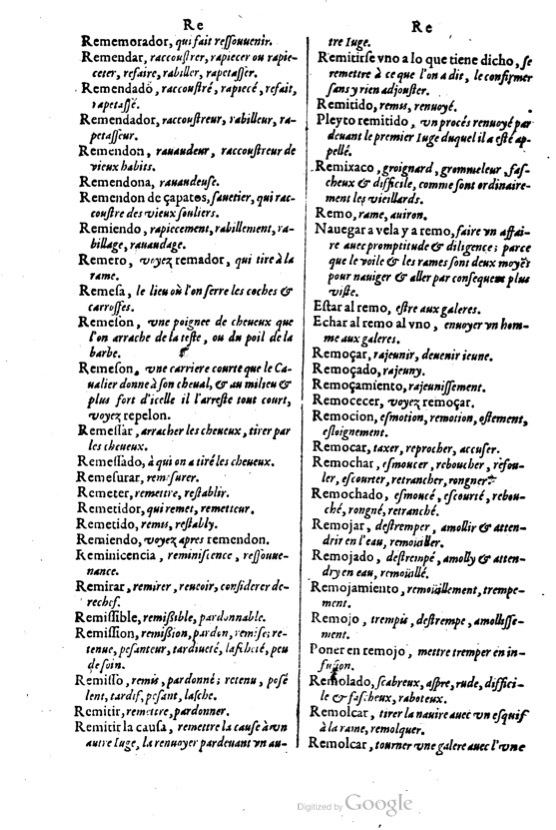 Re
Rememorador, qui fait ressouuenir.
Remendar, raccoustrer, rapiecer ou rapie-
ceter, refaire, rabiller, rapetasser.
Remendadò, raccoustré, rapiecé, refait,
rapetassé.
Remendador, raccoustreur, rabilleur, ra-
petasseur.
Remendon, rauaudeur, raccoustreur de
vieux habits.
Remendona, rauaudeuse.
Remendon de çapatos, sauetier, qui rac-
coustre des vieux souliers.
Remiendo, rapiecement, rabillement, ra-
billage, rauaudage.
Remero, voyez remador, qui tire à la
rame.
Remesa, le lieu où l'on serre les coches &
carrosses.
Remeson, vne poignee de cheueux que
l'on arrache de la teste, ou du poil de la
barbe.
Remeson, vne carriere courte que le Ca-
ualier donne à son cheual, & au milieu &
plus fort d'icelle il l'arreste tout court,
voyez repelon.
Remessar, arracher les cheueux, tirer par
les cheueux.
Remessado, à qui on a tiré les cheueux.
Remesurar, remesurer.
Remeter, remettre, restablir.
Remetidor, qui remet, remetteur.
Remetido, remis, restably.
Remiendo, voyez apres remendon.
Reminicencia, reminiscence, ressouue-
nance.
Remirar, remirer, reuoir, considerer de-
rechef.
Remissible, remissible, pardonnable.
Remission, remission, pardon, remise; re-
tenue, pesanteur, tardiueté, lascheté, peu
de soin.
Remisso, remis, pardonné; retenu, posé
lent, tardif, pesant, lasche.
Remitir, remettre, pardonner.
Remitir la causa, remettre la cause à vn
autre Iuge, la renuoyer pardeuant vn au-
Re
tre Iuge.
Remitirse vno a lo que tiene dicho, se
remettre à ce que l'on a dit, le confirmer
sans y rien adjouster.
Remitido, remis, renuoyé.
Pleyto remitido, vn procés renuoyé par
deuant le premier Iuge duquel il a esté ap-
pellé.
Remixaco, groignard, grommeleur, fas-
cheux & difficile, comme sont ordinaire-
ment les vieillards.
Remo, rame, auiron.
Nauegar a vela y a remo, faire vn affai-
re auec promptitude & diligence; parce
que le voile & les rames sont deux moyẽs
pour nauiger & aller par consequent plus
viste.
Estar al remo, estre aux galeres.
Echar al remo al vno, enuoyer vn hom-
me aux galeres.
Remoçar, rajeunir, deuenir ieune.
Remoçado, rajeuny.
Remoçamiento, rajeunissement.
Remocecer, voyez remoçar.
Remocion, esmotion, remotion, ostement,
esloignement.
Remocar, taxer, reprocher, accuser.
Remochar, esmoucer, reboucher, refou-
ler, escourter, retrancher, rongner.
Remochado, esmoucé, escourté, rebou-
ché, rongné, retranché.
Remojar, destremper, amollir & atten-
drir en l'eau, remoüiller.
Remojado, destrempé, amolly & atten-
dry en eau, remoüillé.
Remojamiento, remoüillement, trempe-
ment.
Remojo, trempis, destrempe, amollisse-
ment.
Poner en remojo, mettre tremper en in-
fusion.
Remolado, scabreux, aspre, rude, diffici-
le & fascheux, raboteux.
Remolcar, tirer la nauire auec vn esquif
à la rame, remolquer.
Remolcar, tourner vne galere auec l'vne
Digitized by Google